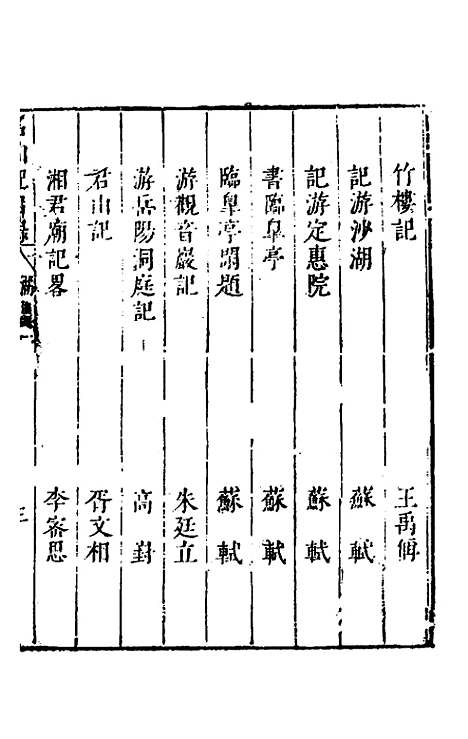 竹樓記 王禹偁
記游沙湖 蘇軾
記游定惠院 蘇軾
書臨皐亭 蘇軾
臨皐亭閒題 蘇軾
游觀音巖記 朱廷立
游岳陽洞庭記 高對
君山記 胥文相
湘君廟記畧 李密思
三